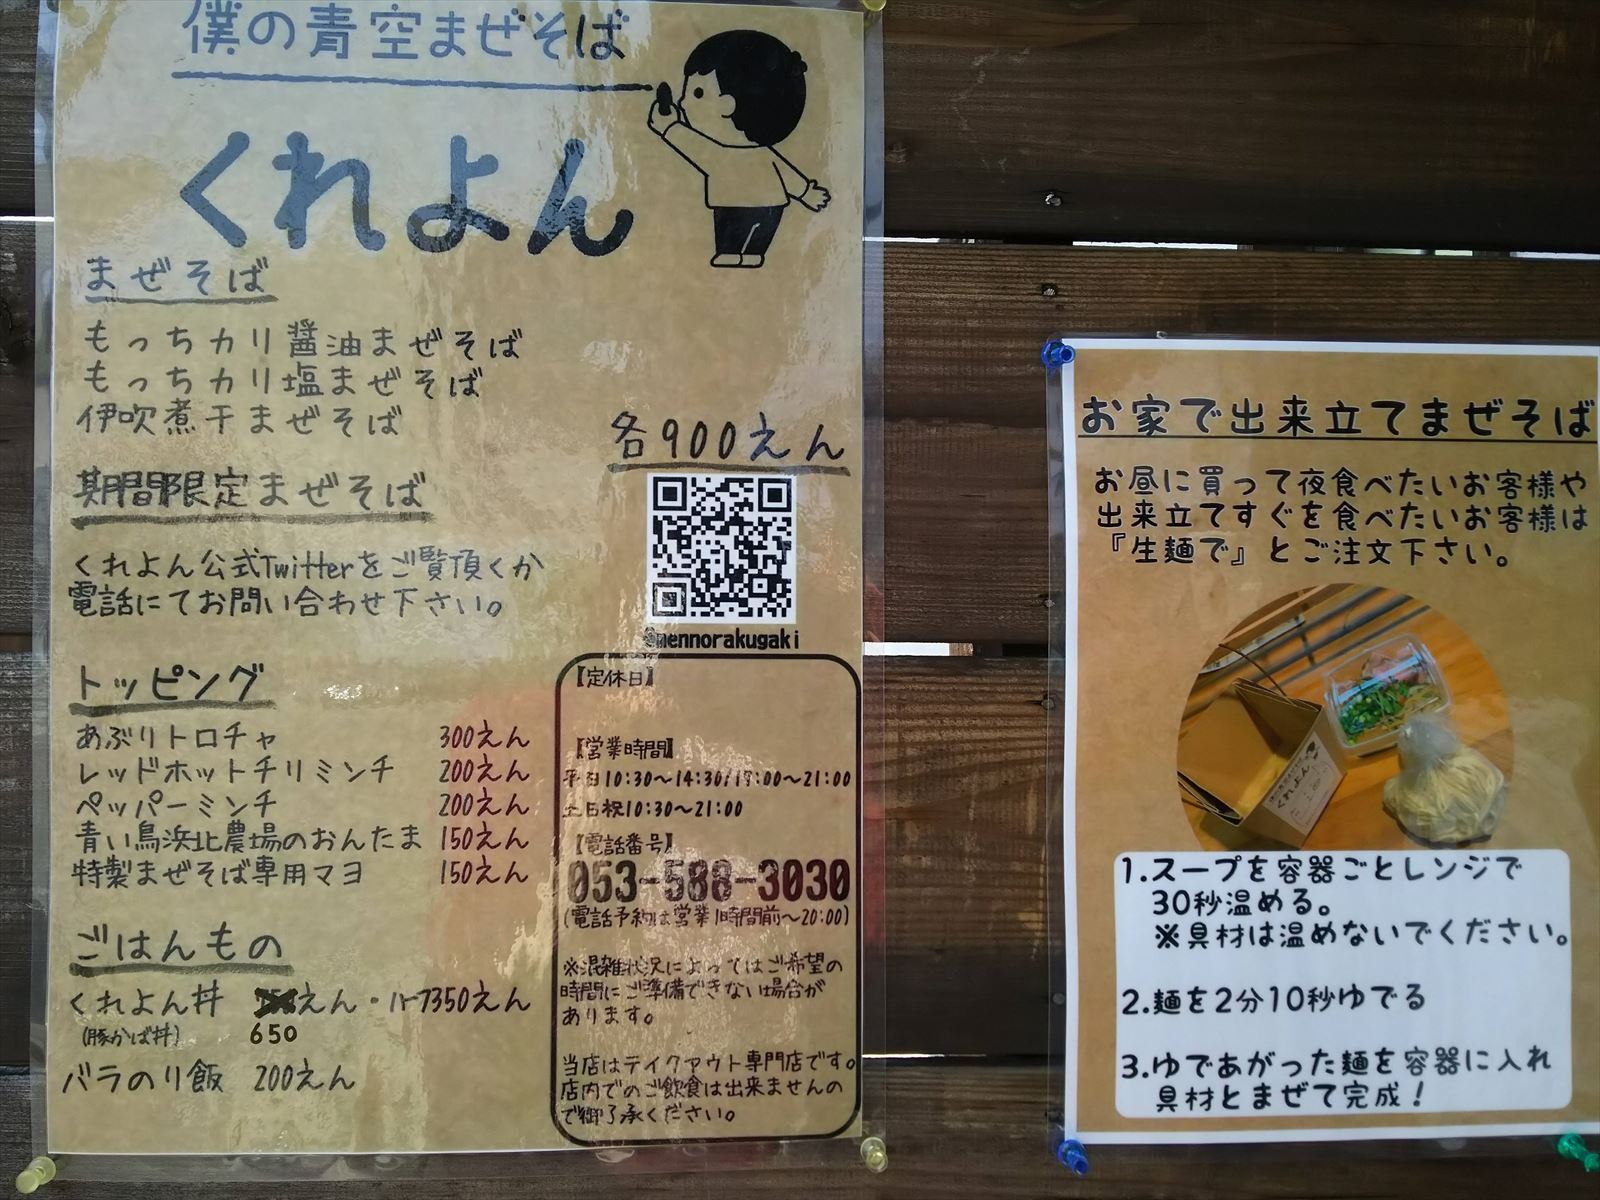 僕の青空まぜそば
くれよん
まぜそば
もっちカリ醤油まぜそば
もっちカリ塩まぜそば
伊吹煮干まぜそば
各900えん
期間限定まぜそば
くれよん公式Twitterをご覧頂くか
電話にてお問い合わせ下さい。
@mennorakugaki
トッピング
あぶりトロチャ 300えん
レッドホットチリミンチ 200えん
ペッパーミンチ 200えん
青い鳥浜北農場のおんたま 150えん
特製まぜそば専用マヨ 150えん
ごはんもの
くれよん丼 えん・ハーフ350えん
(豚かば丼) 650
バラのり飯 200えん
【定休日】
【営業時間】
平日10:30〜14:30/17:00〜21:00
土日祝10:30〜21:00
【電話番号】
053-588-3030
(電話予約は営業1時間前〜20:00)
※混雑状況によってはご希望の
時間にご準備できない場合が
あります。
当店はテイクアウト専門店です。
店内でのご飲食は出来ませんの
で御了承ください。
お家で出来立てまぜそば
お昼に買って夜食べたいお客様や
出来立てすぐを食べたいお客様は
『生麺で』とご注文下さい。
くれよん
1.スープを容器ごとレンジで
30秒温める。
※具材は温めないでください。
2.麺を2分10秒ゆでる
3.ゆであがった麺を容器に入れ
具材とまぜて完成！